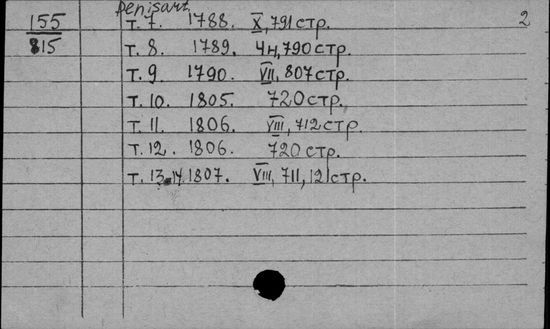 penisart 2
155 т. 7. 1788. X, 791 стр.
815 т. 8. 1789. 4н, 790 стр.
т. 9. 1790. VII, 807 стр.
т. 10. 1805. 720 стр.
т. 11. 1806. VIII, 712 стр.
т. 12. 1806. 720 стр.
т. 13-14. 1807. VIII, 711, 121 стр.